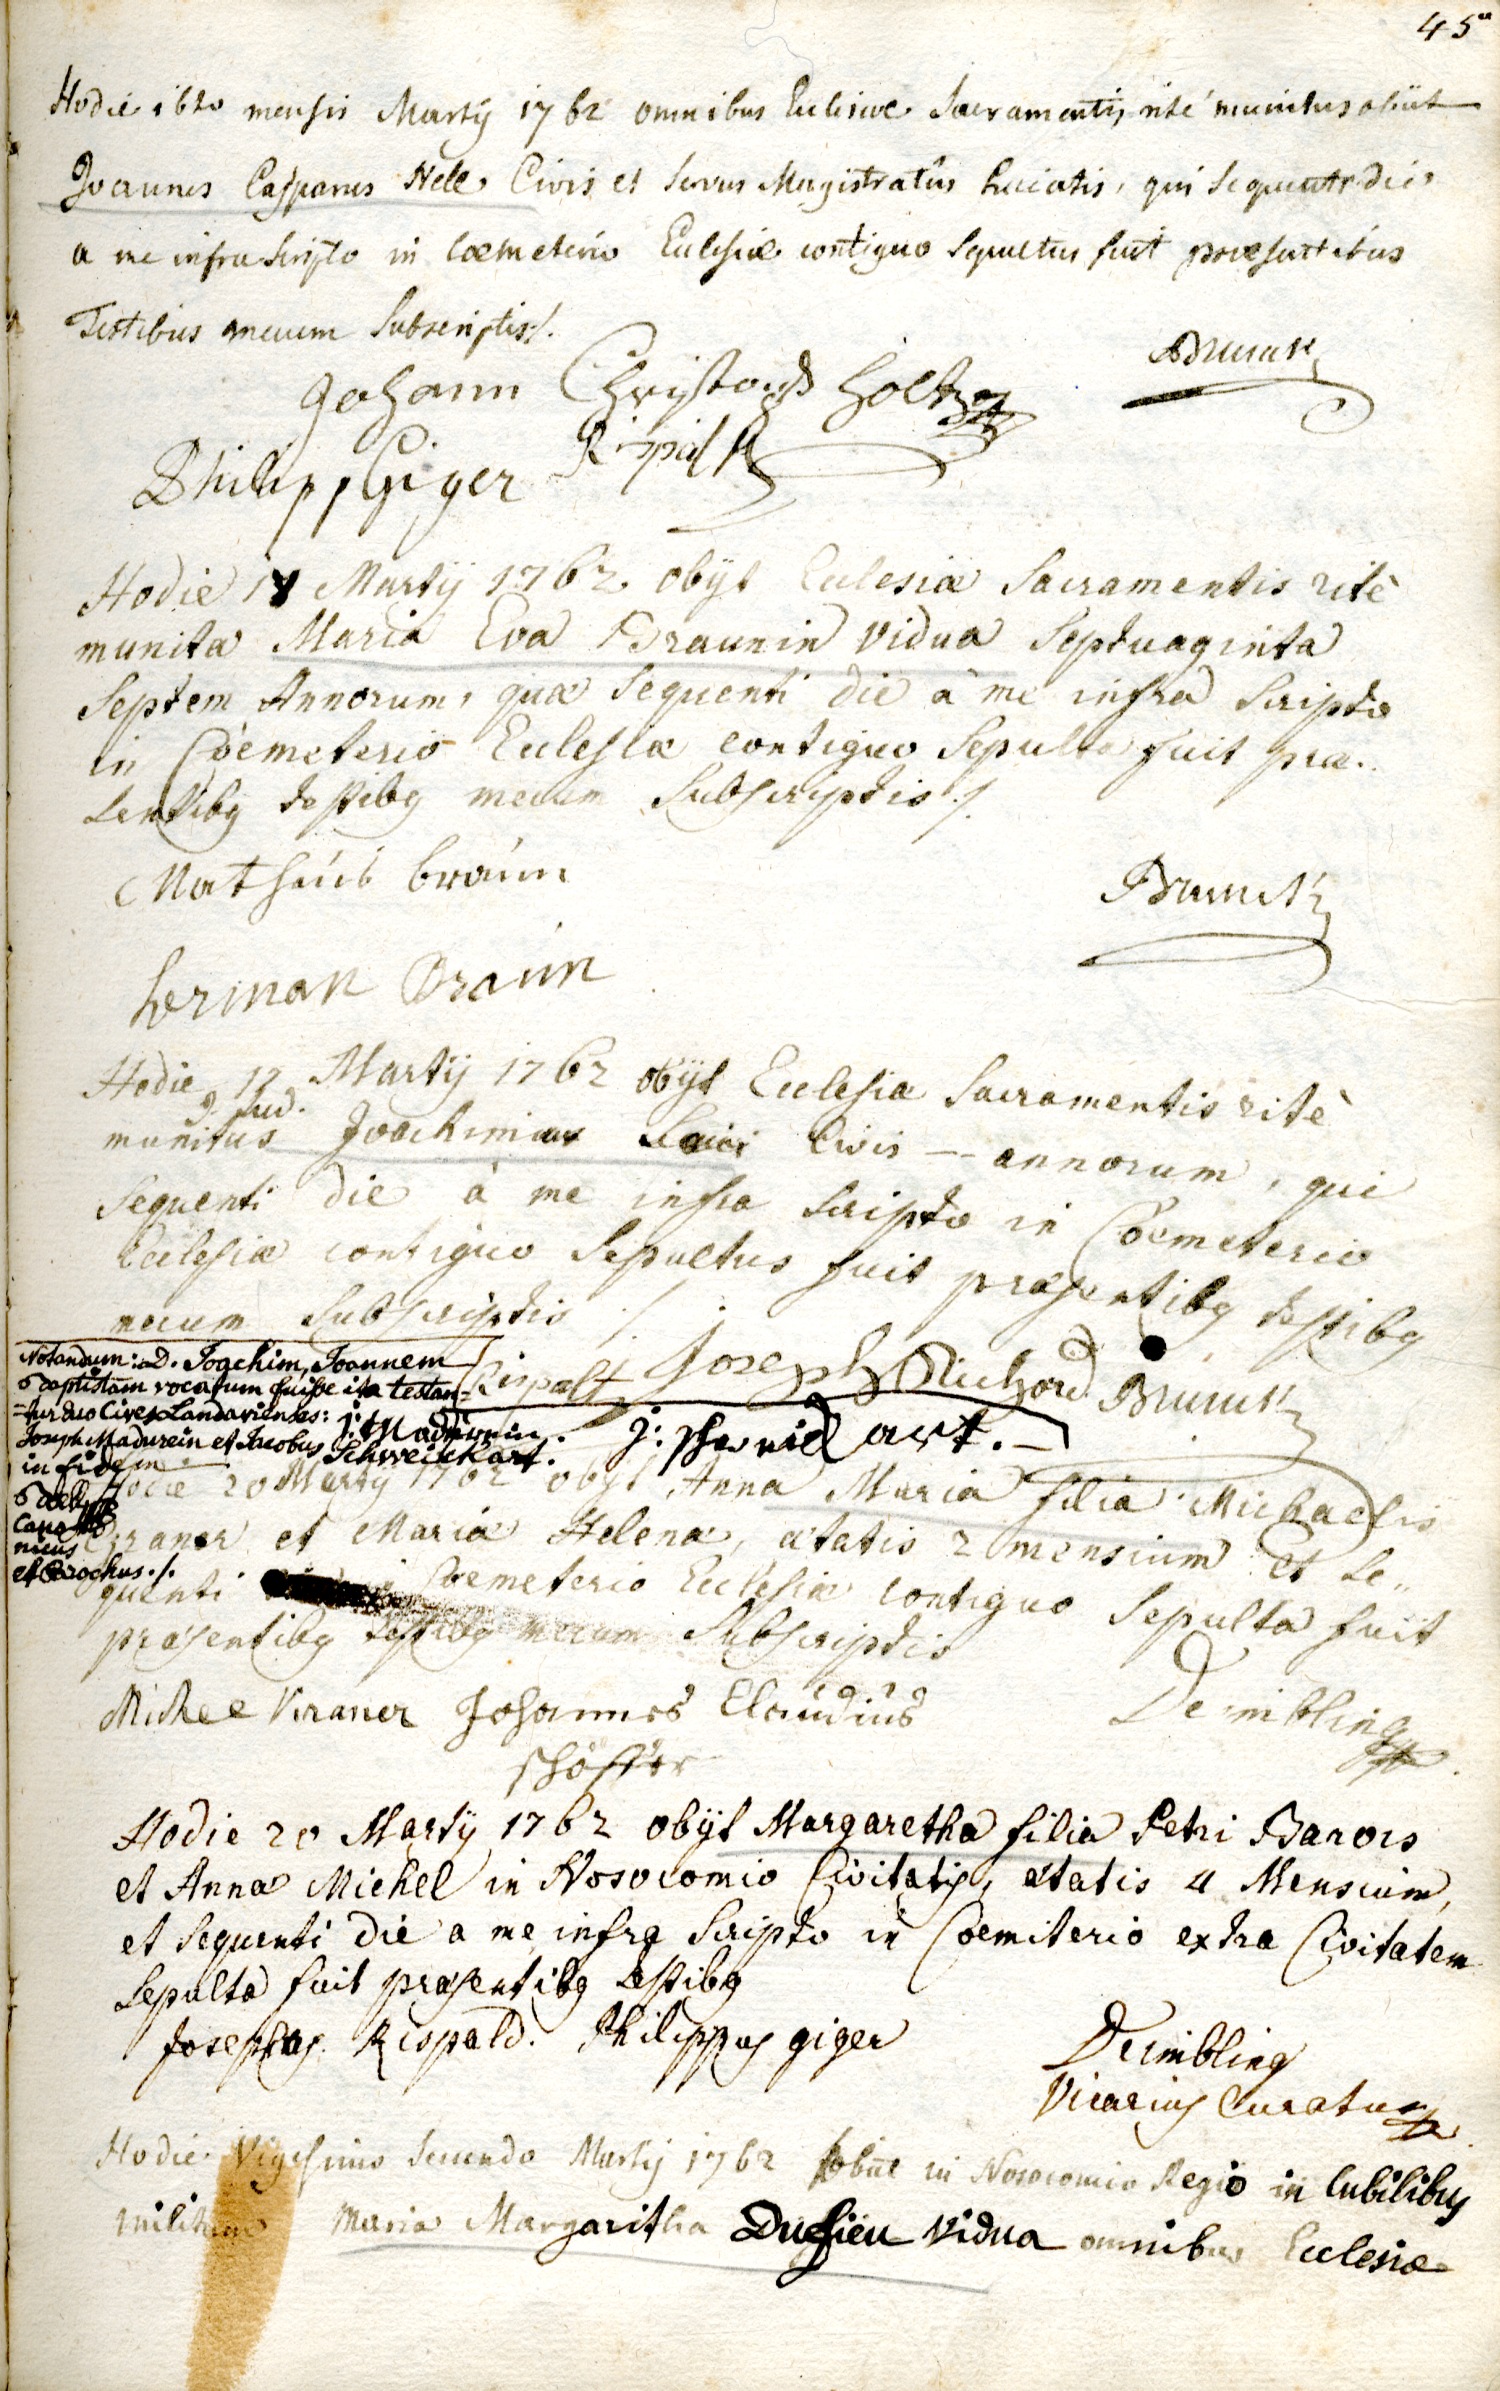 45
Hodie 16to mensis Martÿ 1762 omnibus Eclesiae Sacramentis rité munitus obiit
Joannes Casparus Nele Civis et servus Magistratûs huiatis, qui sequenti die
a me infra scripto in Coemeterio Eclesiae contiguo sepultus fuit praesentibus
Testibus mecum Subscriptis /.
Brunck
Johann Christoph Holtz
Philipp Giger Rispalt
Hodie 18 Martÿ 1762 obÿt Eclesiae Sacramentis ritè
munita Maria Eva Braunin vidua Septuaginta
Septem Annorum, quae sequenti die à me infra scripto
in Coemeterio Eclesiae contiguo Sepulta fuit prae..
sentibg testibg mecum Subscriptis /.
Mathäus braun
Brunck
Herman Braun
Hodie 17 Martÿ 1762 obÿt Ecclesiae Sacramentis ritè
munitus Joachimus Civis — annorum, qui
sequenti die à me infra scripto in Coemeterio
Ecclesiae contiguo Sepultus fuit praesentibg testibg
mecum Subscriptis /.
Rispalt Joseph Richard Brunck
Notandum: D. Joachim, Joannem
Baptistam vocatum fuisse ita testan=
=tur duo Cives Landavienses: j: Madurein.
Joseph Madurein et Jacobus Schweickart. j: schweickart.—
in fidem
Cano
nicus
et Parochus./.
Hodie 20 Martÿ 1762 obÿt Anna Maria filia Michaelis
Kraner et Mariae Helenae, aetatis 2 mensium et se..
quenti Coemeterio Ecclesiae contiguo Sepulta fuit
praesentibg testibg mecum Subscriptis
Michel Kraner Johannes Claudius
schöffer
Deimbling
Hodie 20 Martÿ 1762 obÿt Margaretha filia Petri Barois
et Annae Michel in Nosocomio Civitatis, aetatis 4 Mensium,
et sequenti die a me infra scripto in Coemiterio extra Civitatem
Sepulta fuit praesentibg testibg
Josephus Rispald. Philippus giger
Deimbling
Vicarius Curatus
Hodie Vigesimo secundo Martÿ 1762 obiit in Nosocomio Regio in Cubilibus
militum Maria Margaritha Dusieu vidua omnibus Ecclesiae